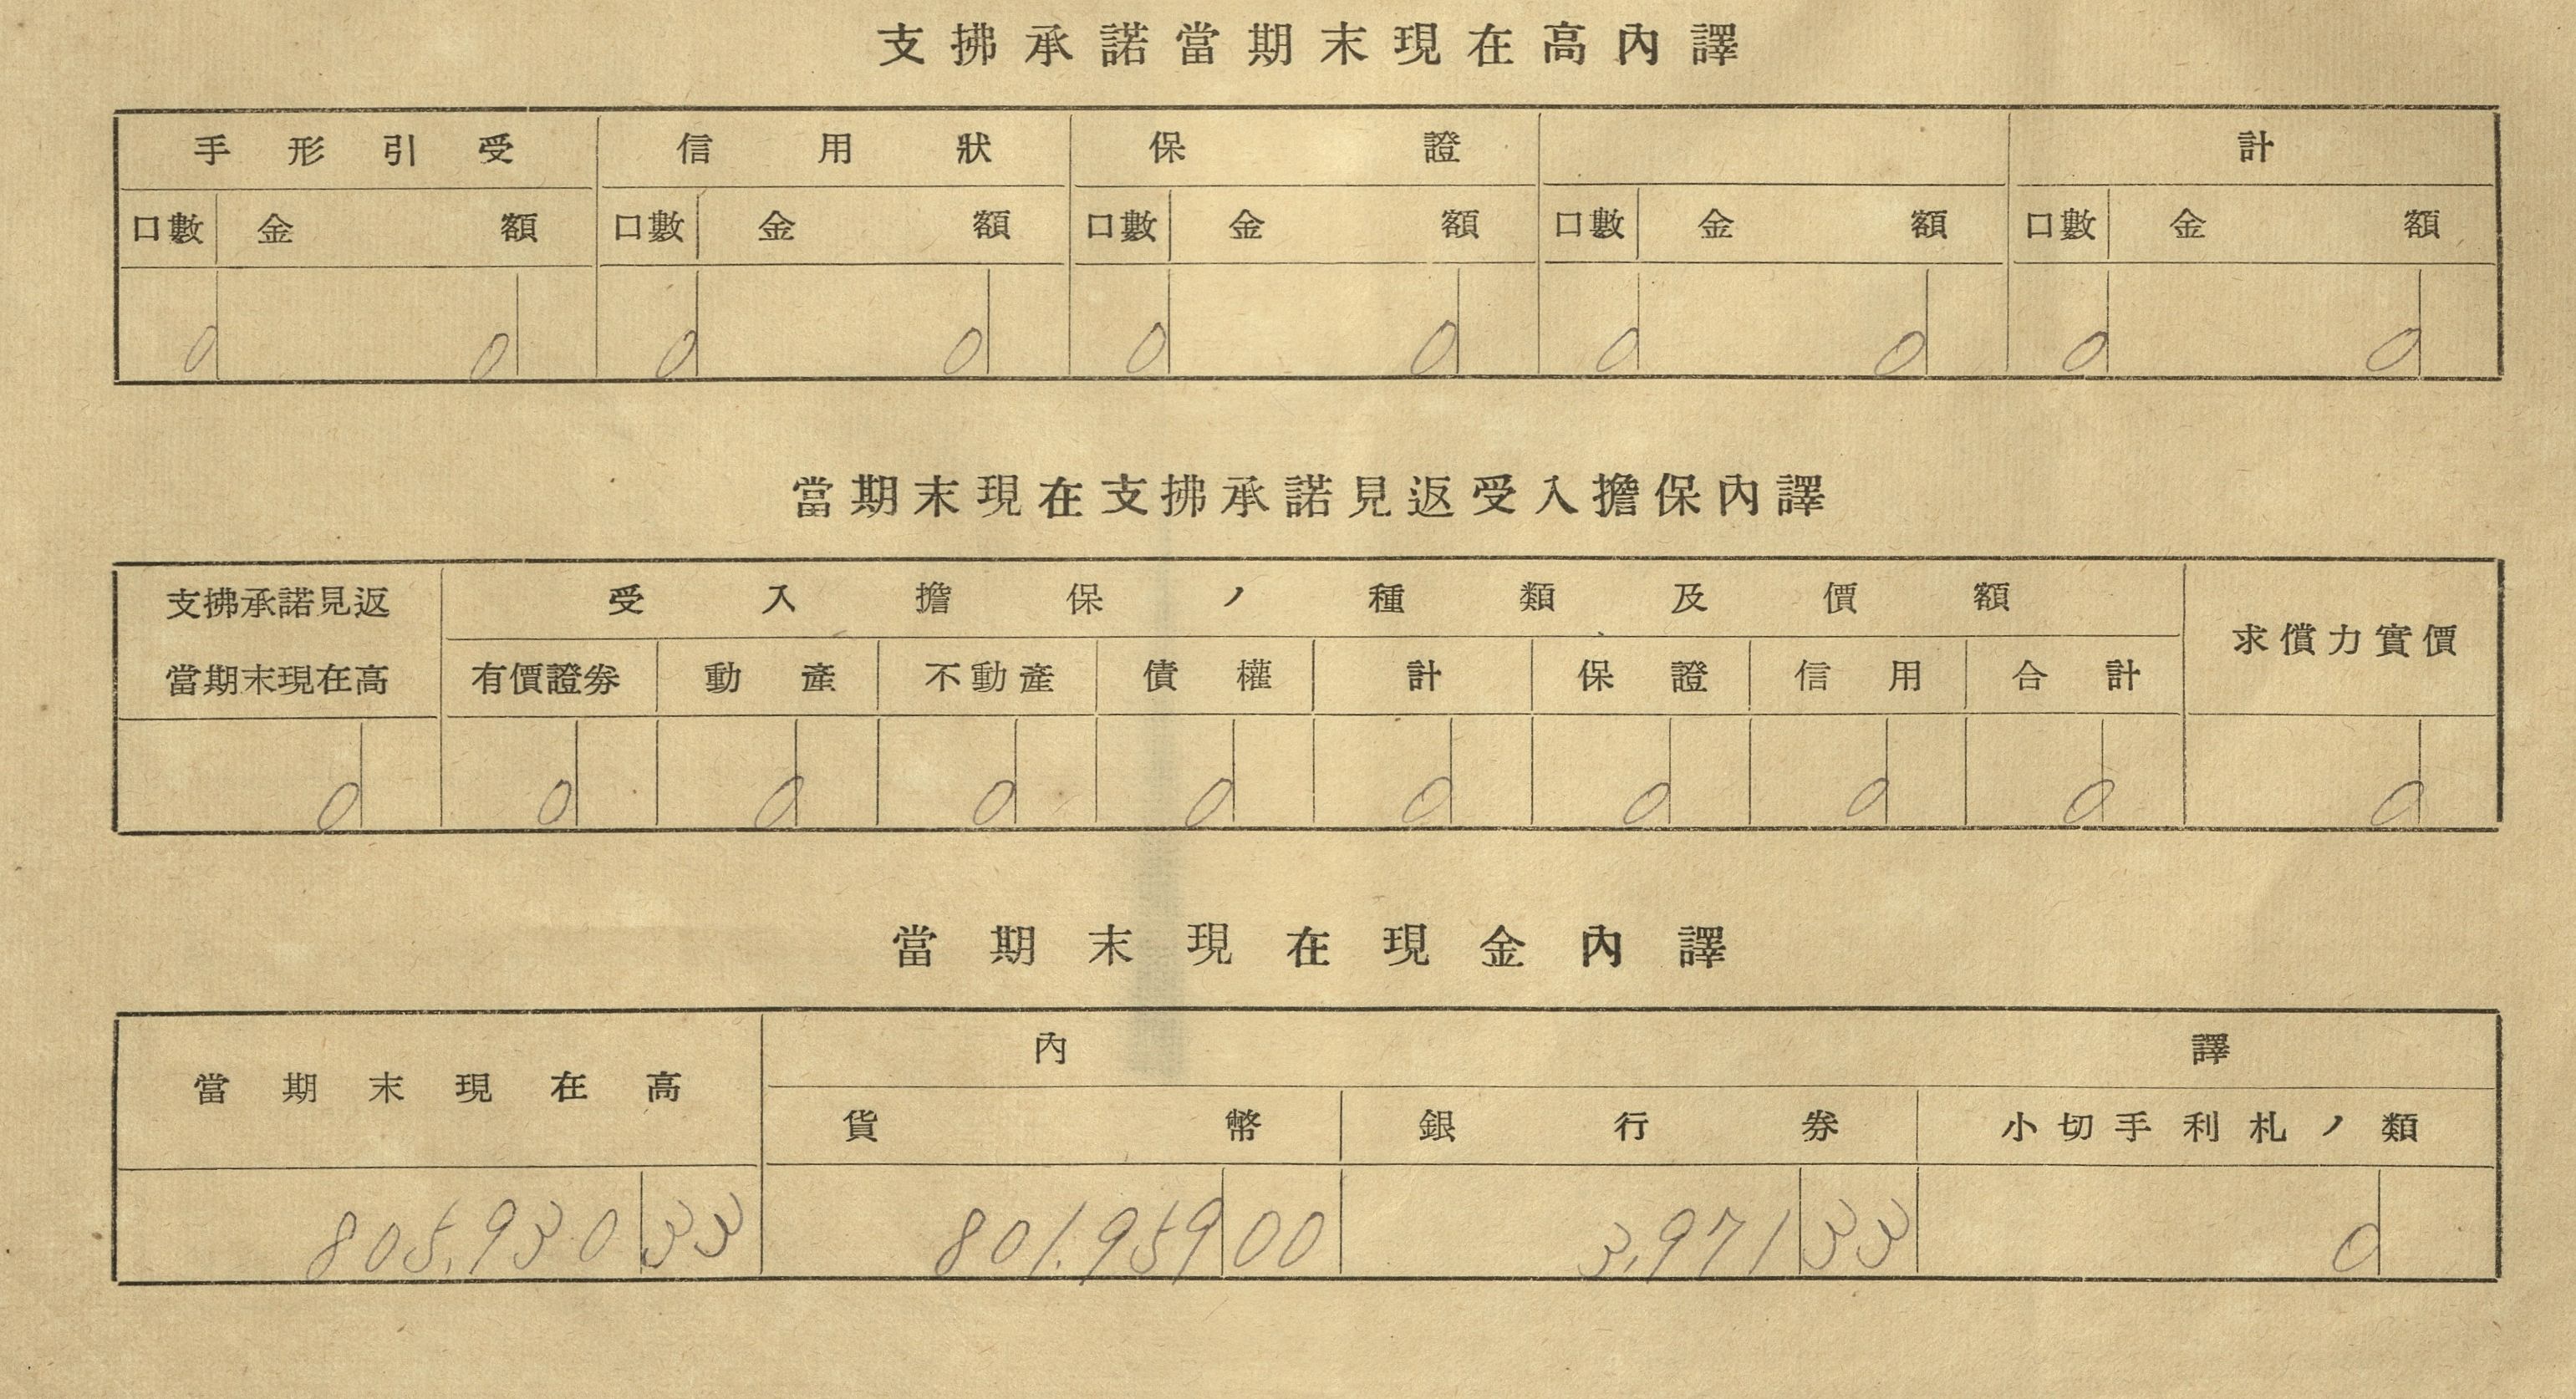 支拂承諾當期末現在高內譯
手形引受 信用狀 保證 計
口數 金額 口數 金額 口數 金額 口數 金額 口數 金額
0 0 0 0 0 0 0 0 0 0
當期末現在支拂承諾見返受入擔保內譯
支拂承諾見返 受入擔保ノ種類及價額 求償力實價
當期末現在高 有價證劵 動產 不動產 債權 計 保證 信用 合計
0 0 0 0 0 0 0 0 0 0
當期末現在現金內譯
當期末現在高 內譯
貨幣 銀行劵 小切手利札ノ類
805,930 33 801,959 00 3,971 33 0